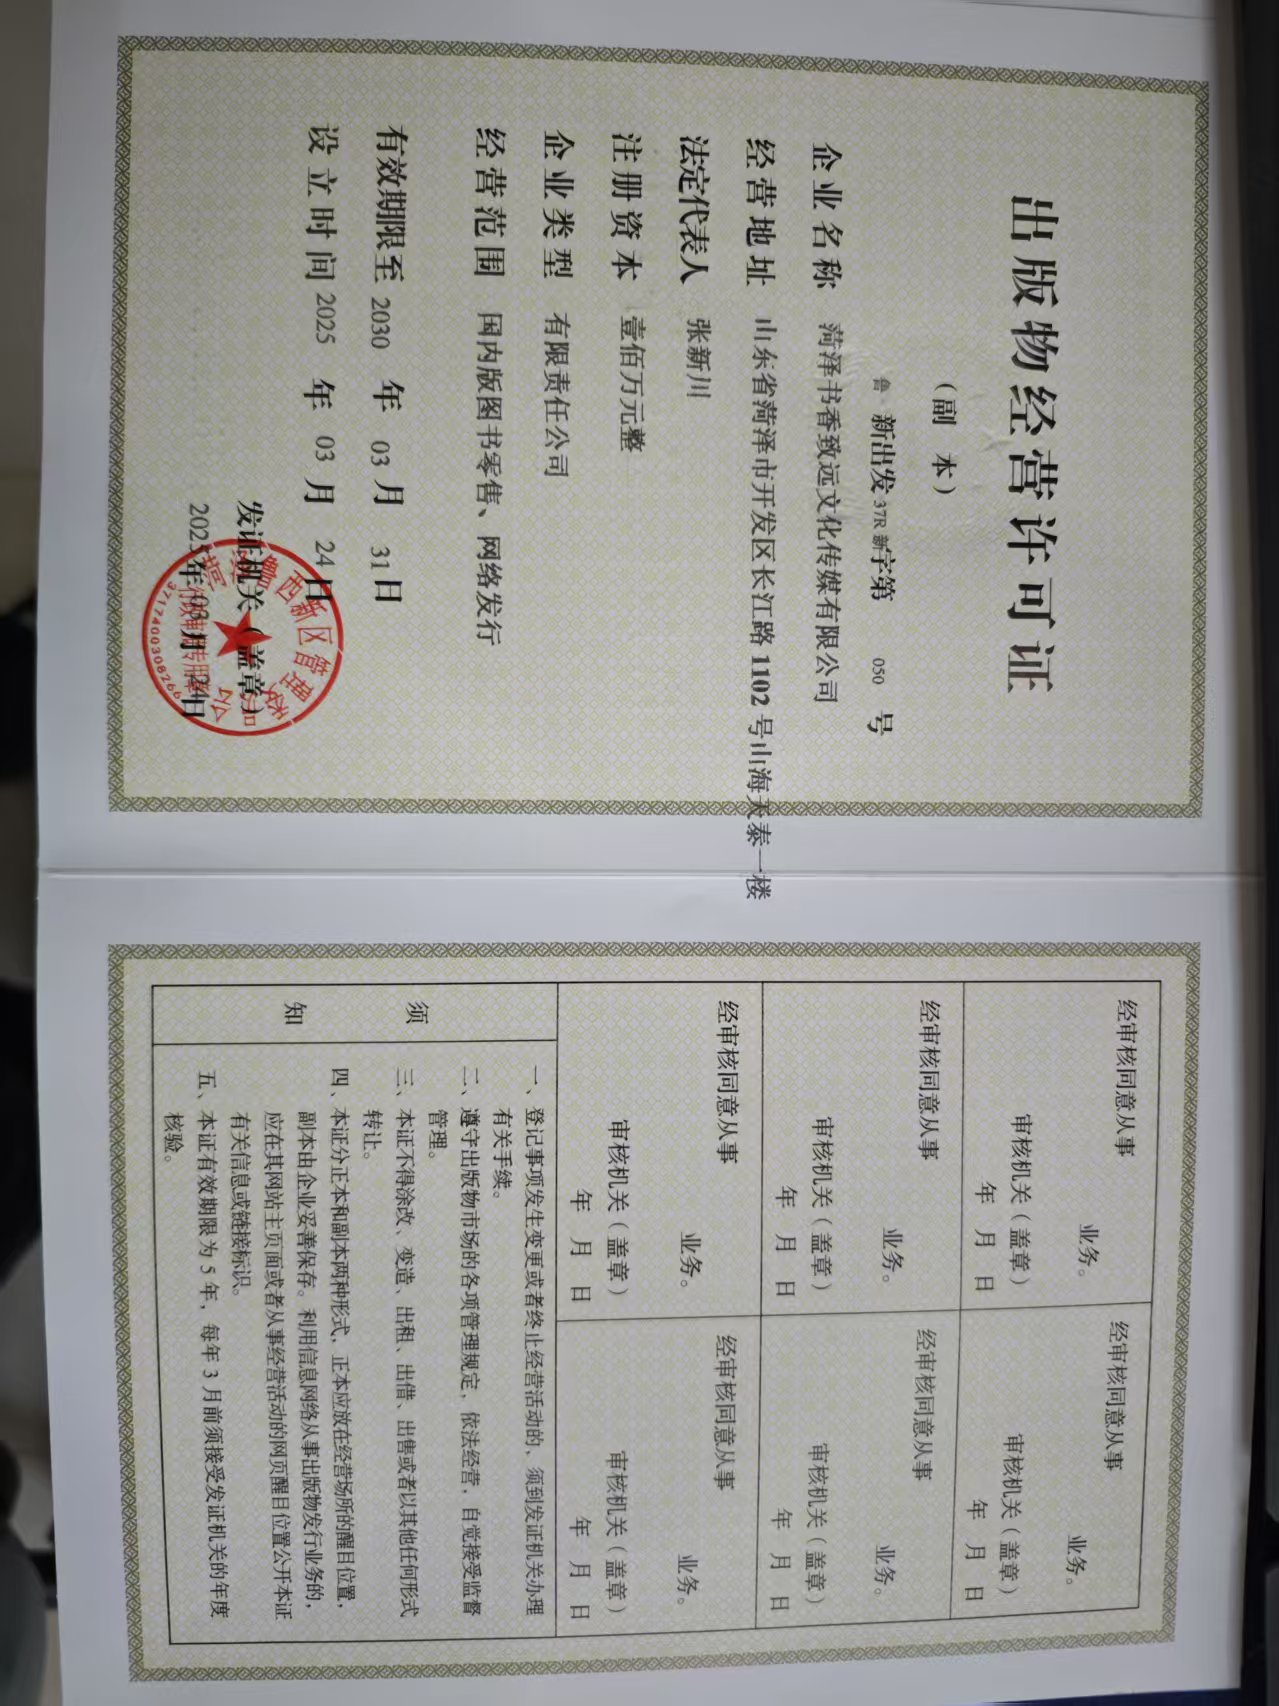 出版物经营许可证
（副 本）
鲁 新出发 37R 新 字第 050 号
企业名称 菏泽书香致远文化传媒有限公司
经营地址 山东省菏泽市开发区长江路1102号山海天泰一楼
法定代表人 张新川
注册资本 壹佰万元整
企业类型 有限责任公司
经营范围 国内版图书零售、网络发行
有效期限至 2030 年 03 月 31 日
设立时间 2025 年 03 月 24 日
发证机关（盖章）
2025年03月24日
鲁西新区管理委员会
行政审批专用章
3717400308266
经审核同意从事
业务。
审核机关（盖章）
年 月 日
经审核同意从事
业务。
审核机关（盖章）
年 月 日
经审核同意从事
业务。
审核机关（盖章）
年 月 日
经审核同意从事
业务。
审核机关（盖章）
年 月 日
经审核同意从事
业务。
审核机关（盖章）
年 月 日
经审核同意从事
业务。
审核机关（盖章）
年 月 日
须 知
一、登记事项发生变更或者终止经营活动的，须到发证机关办理
有关手续。
二、遵守出版物市场的各项管理规定，依法经营，自觉接受监督
管理。
三、本证不得涂改、变造、出租、出借、出售或者以其他任何形式
转让。
四、本证分正本和副本两种形式，正本应放在经营场所的醒目位置，
副本由企业妥善保存。利用信息网络从事出版物发行业务的，
应在其网站主页面或者从事经营活动的网页醒目位置公开本证
有关信息或链接标识。
五、本证有效期限为5年，每年3月前须接受发证机关的年度
核验。